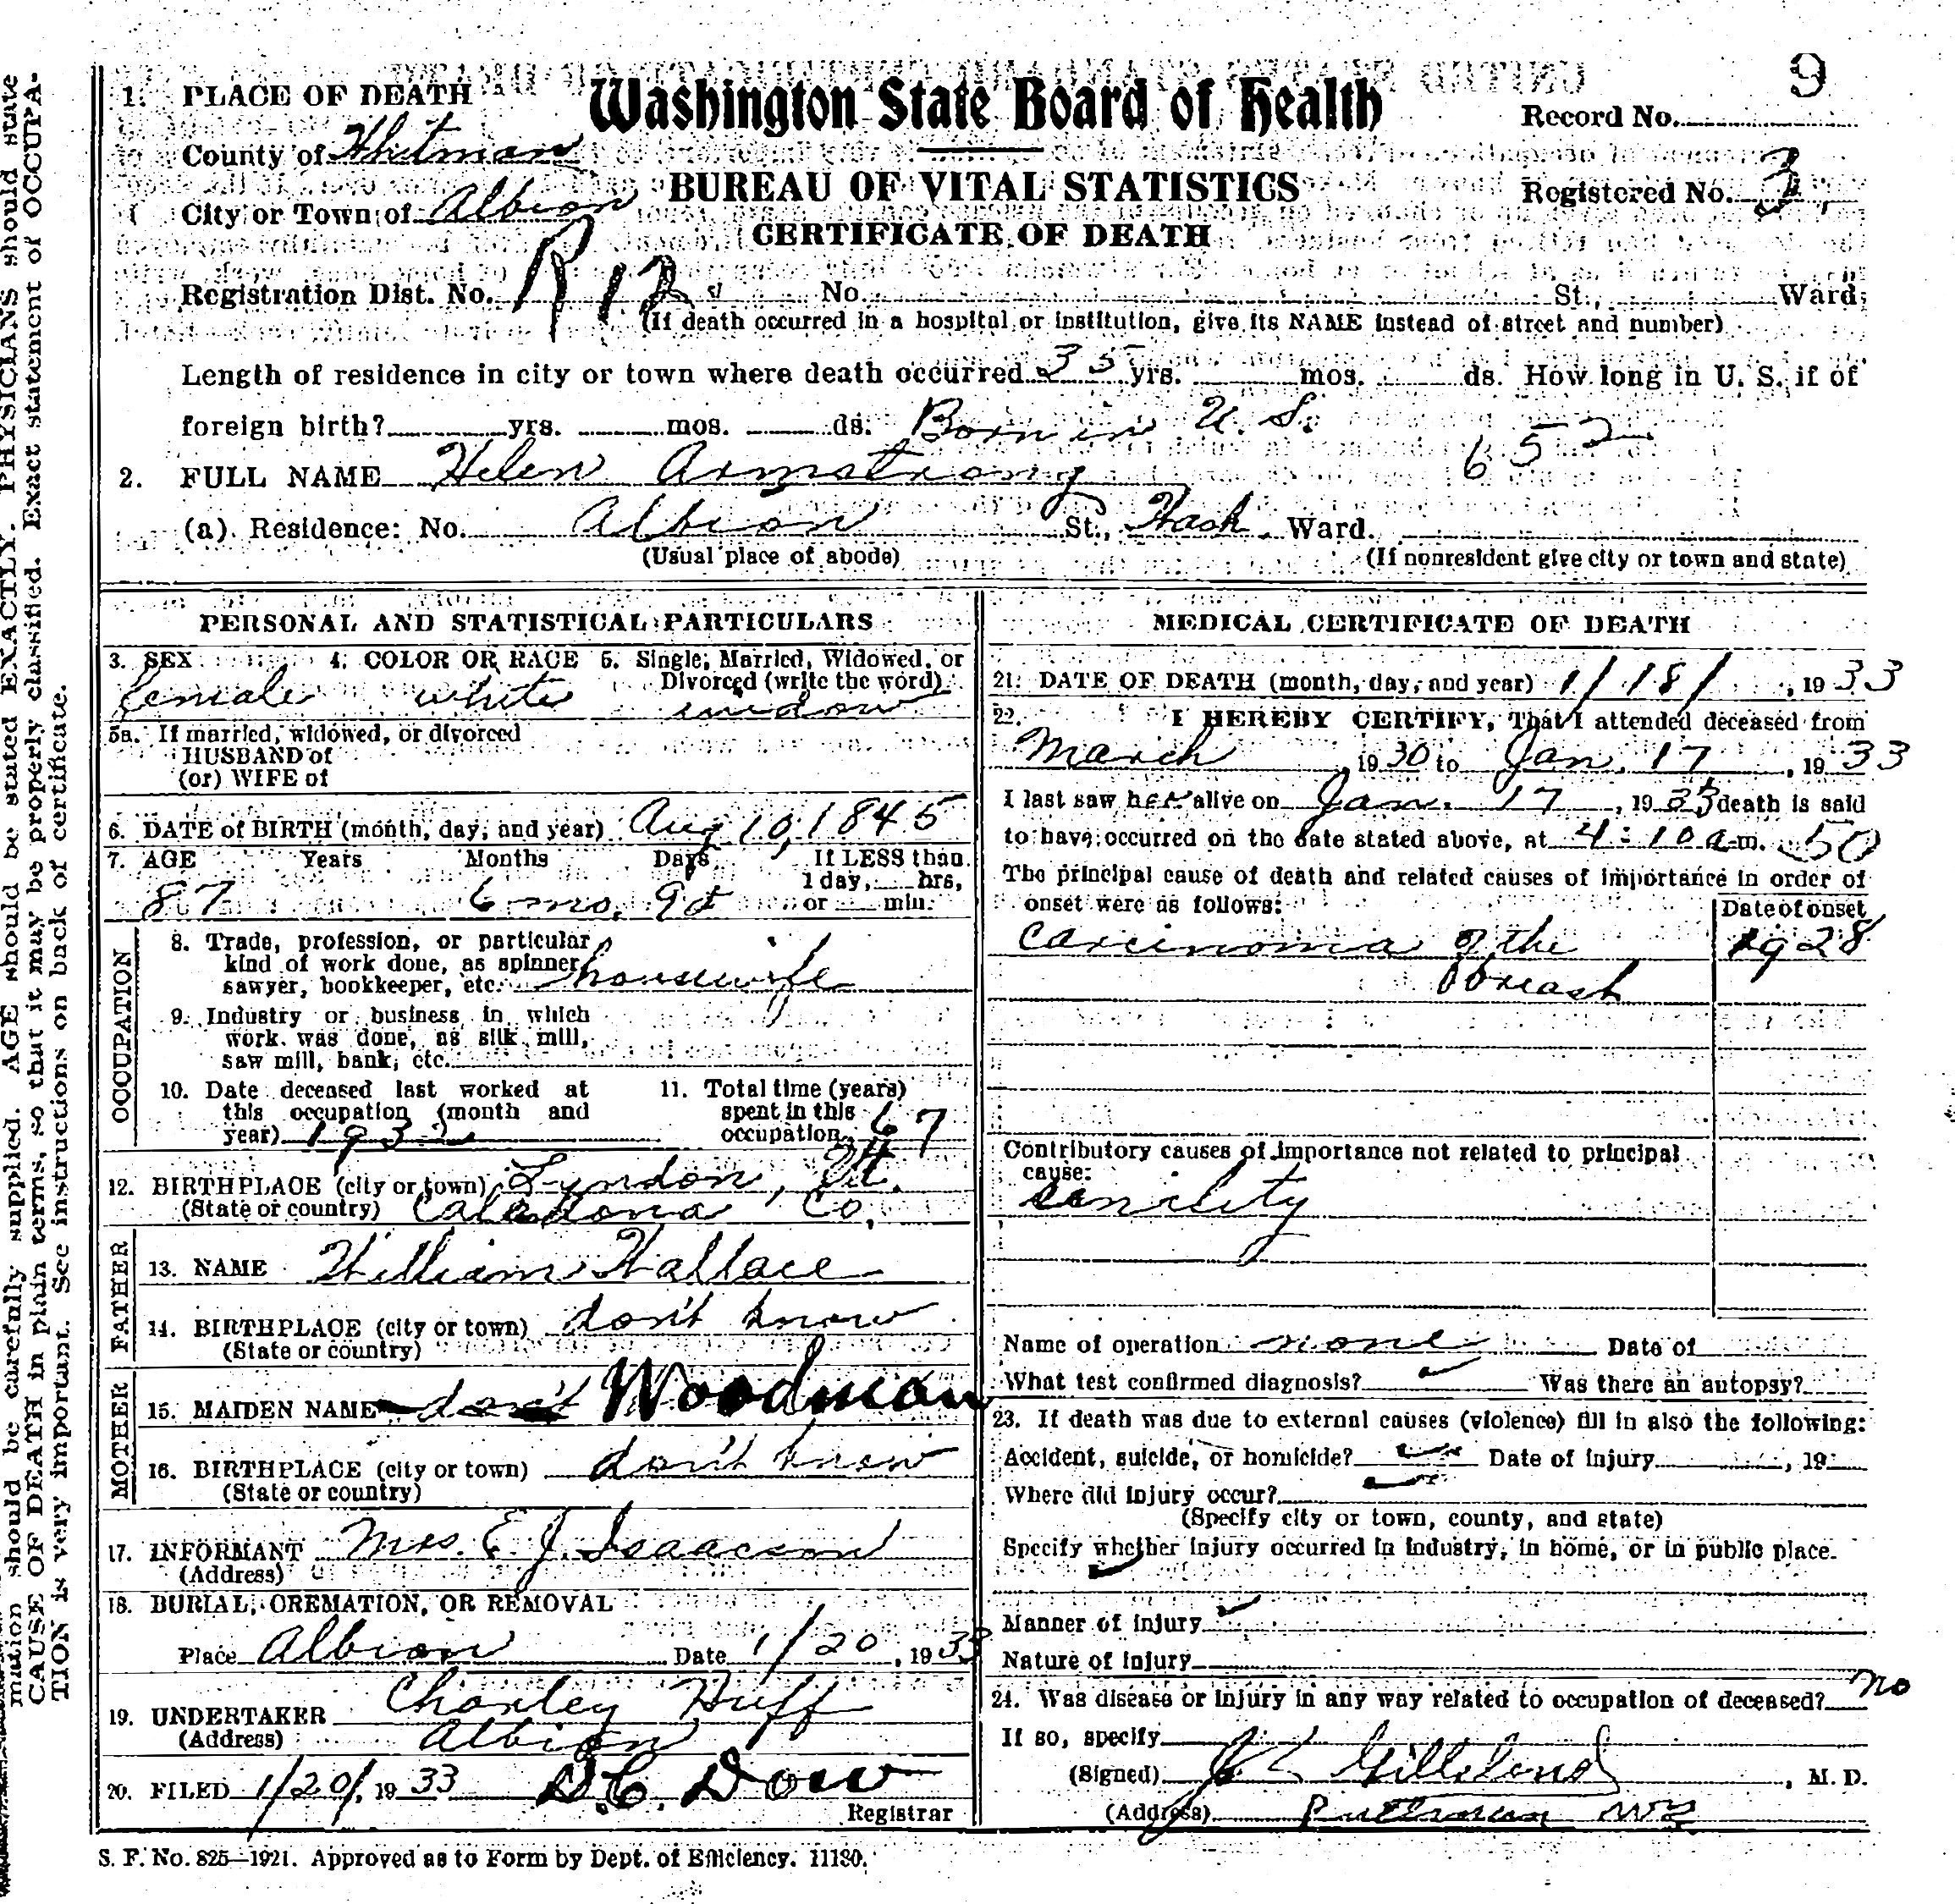 mation should be carefully supplied. AGE should be stated EXACTLY. PHYSICIANS should state
CAUSE OF DEATH in plain terms, so that it may be properly classified. Exact statement of OCCUPA-
TION is very important. See instructions on back of certificate.
9
1. PLACE OF DEATH
Washington State Board of Health
Record No.
County of Whitman
BUREAU OF VITAL STATISTICS
Registered No. 3
City or Town of Albion
CERTIFICATE OF DEATH
Registration Dist. No. R12 No. St., Ward
(If death occurred in a hospital or institution, give its NAME instead of street and number)
Length of residence in city or town where death occurred 35 yrs. mos. ds. How long in U. S. if of
foreign birth? yrs. mos. ds. Born in U. S.
652
2. FULL NAME Helen Armstrong
(a) Residence: No. Albion St., Wash Ward.
(Usual place of abode) (If nonresident give city or town and state)
PERSONAL AND STATISTICAL PARTICULARS
3. SEX 4. COLOR OR RACE 5. Single, Married, Widowed, or
Divorced (write the word)
female white widow
5a. If married, widowed, or divorced
HUSBAND of
(or) WIFE of
6. DATE of BIRTH (month, day, and year) Aug 10, 1845
7. AGE Years Months Days If LESS than
1 day, hrs,
87 6 mo. 9d or min.
OCCUPATION
8. Trade, profession, or particular
kind of work done, as spinner
sawyer, bookkeeper, etc. housewife
9. Industry or business in which
work was done, as silk mill,
saw mill, bank, etc.
10. Date deceased last worked at
this occupation (month and
year) 1932
11. Total time (years)
spent in this
occupation 67
12. BIRTHPLACE (city or town) Lyndon, Vt.
(State or country) Caledona Co.
FATHER
13. NAME William Wallace
14. BIRTHPLACE (city or town) don't know
(State or country)
MOTHER
15. MAIDEN NAME don't Woodman
16. BIRTHPLACE (city or town) don't know
(State or country)
17. INFORMANT Mrs. E. J. Isaacson
(Address)
18. BURIAL, CREMATION, OR REMOVAL
Place Albion Date 1/20, 1933
19. UNDERTAKER Charley Huff
(Address) Albion
20. FILED 1/20/, 1933 S.C. Dow
Registrar
MEDICAL CERTIFICATE OF DEATH
21. DATE OF DEATH (month, day, and year) 1/18/, 1933
22. I HEREBY CERTIFY, That I attended deceased from
March, 1930 to Jan. 17, 1933
I last saw her alive on Jan. 17, 1933 death is said
to have occurred on the date stated above, at 4:10 a.m. 50
The principal cause of death and related causes of importance in order of
onset were as follows: Date of onset
Carcinoma of the 1928
breast
Contributory causes of importance not related to principal
cause:
senility
Name of operation none Date of
What test confirmed diagnosis? Was there an autopsy?
23. If death was due to external causes (violence) fill in also the following:
Accident, suicide, or homicide? Date of injury, 19
Where did injury occur?
(Specify city or town, county, and state)
Specify whether injury occurred in industry, in home, or in public place.
Manner of injury
Nature of injury
24. Was disease or injury in any way related to occupation of deceased? no
If so, specify
(Signed) Gilleland, M. D.
(Address) Pullman
S. F. No. 825—1921. Approved as to Form by Dept. of Efficiency. 11130.